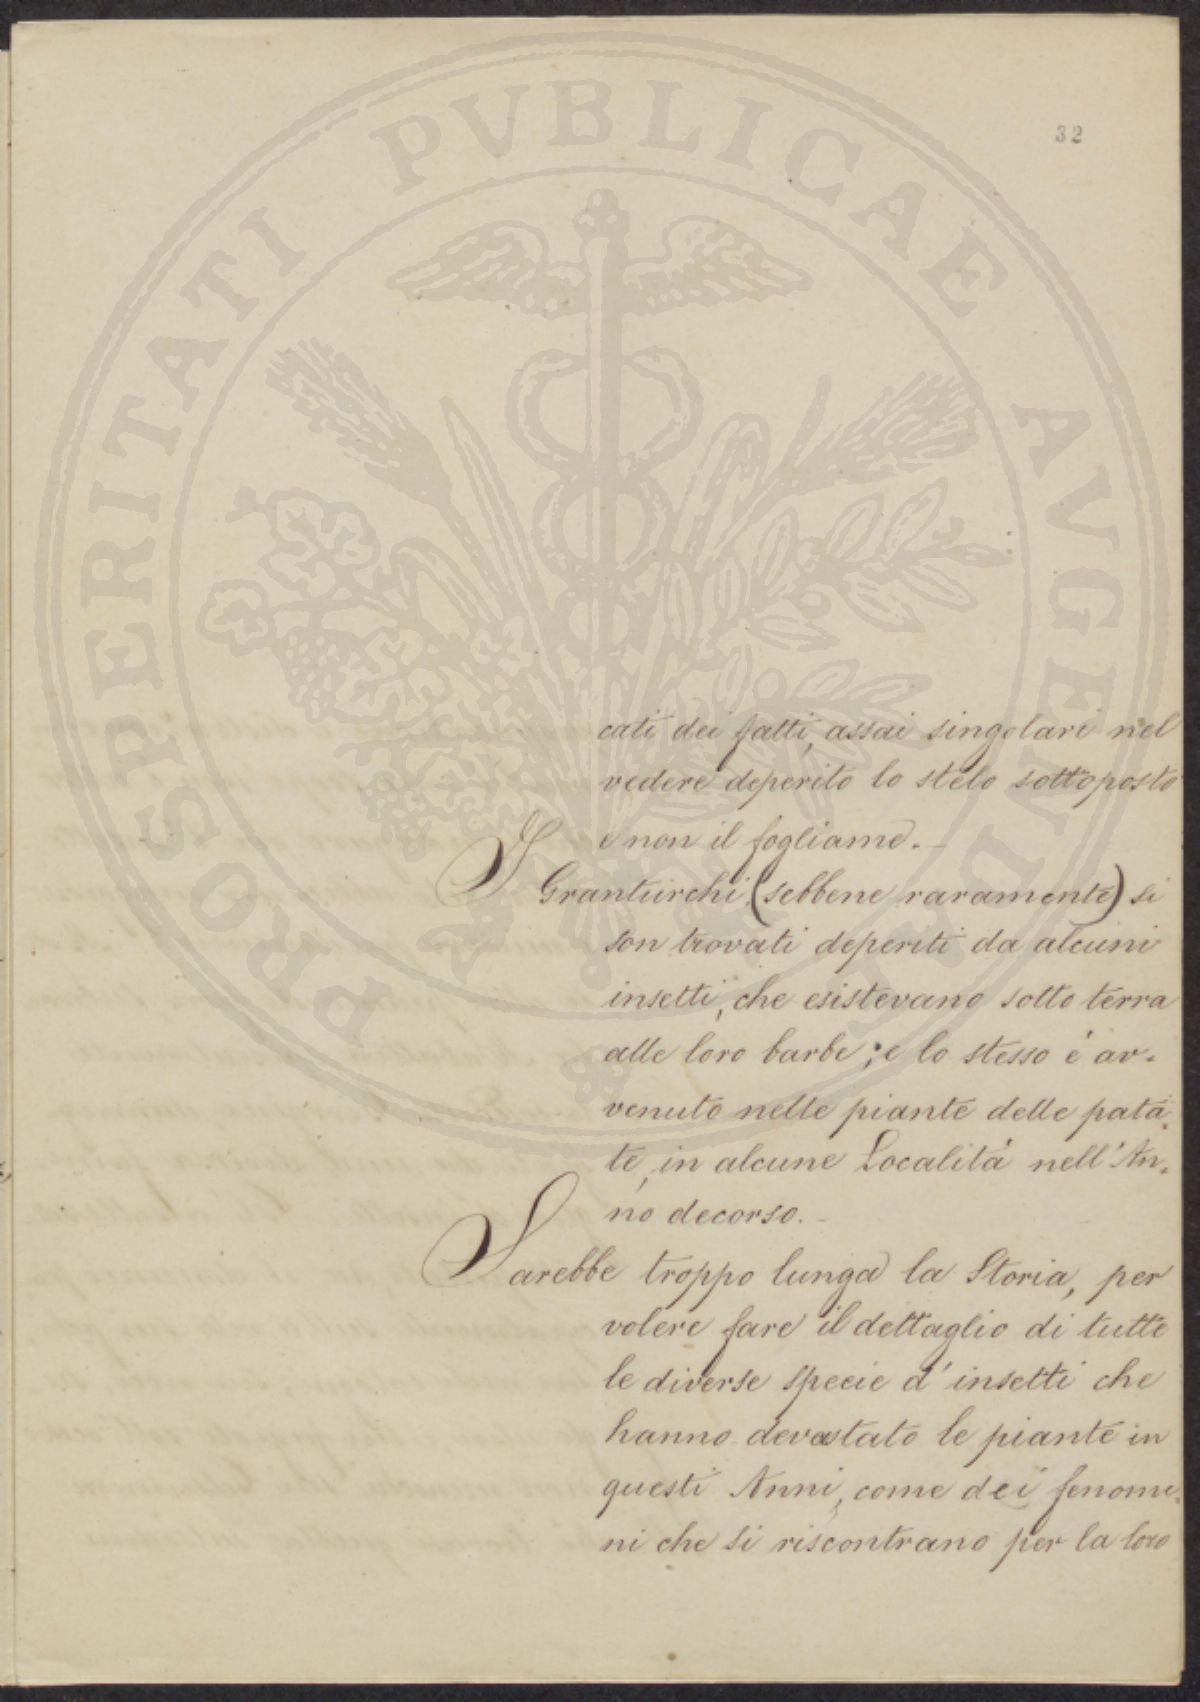 32
PROSPERITATI PVBLICAE AVGENDAE
cati dei fatti, assai singolari nel
vedere deperito lo stelo sottoposto
e non il fogliame. _
I Granturchi, (sebbene raramente) si
son trovati deperiti da alcuni
insetti, che esistevano sotto terra
alle loro barbe; e lo stesso é av-
venuto nelle piante delle pata-
te, in alcune Localitá nell'An-
no decorso. _
Sarebbe troppo lunga la Storia, per
volere fare il dettaglio di tutte
le diverse specie d'insetti che
hanno devastato le piante in
questi Anni, come dei fenome-
ni che si riscontrano per la loro